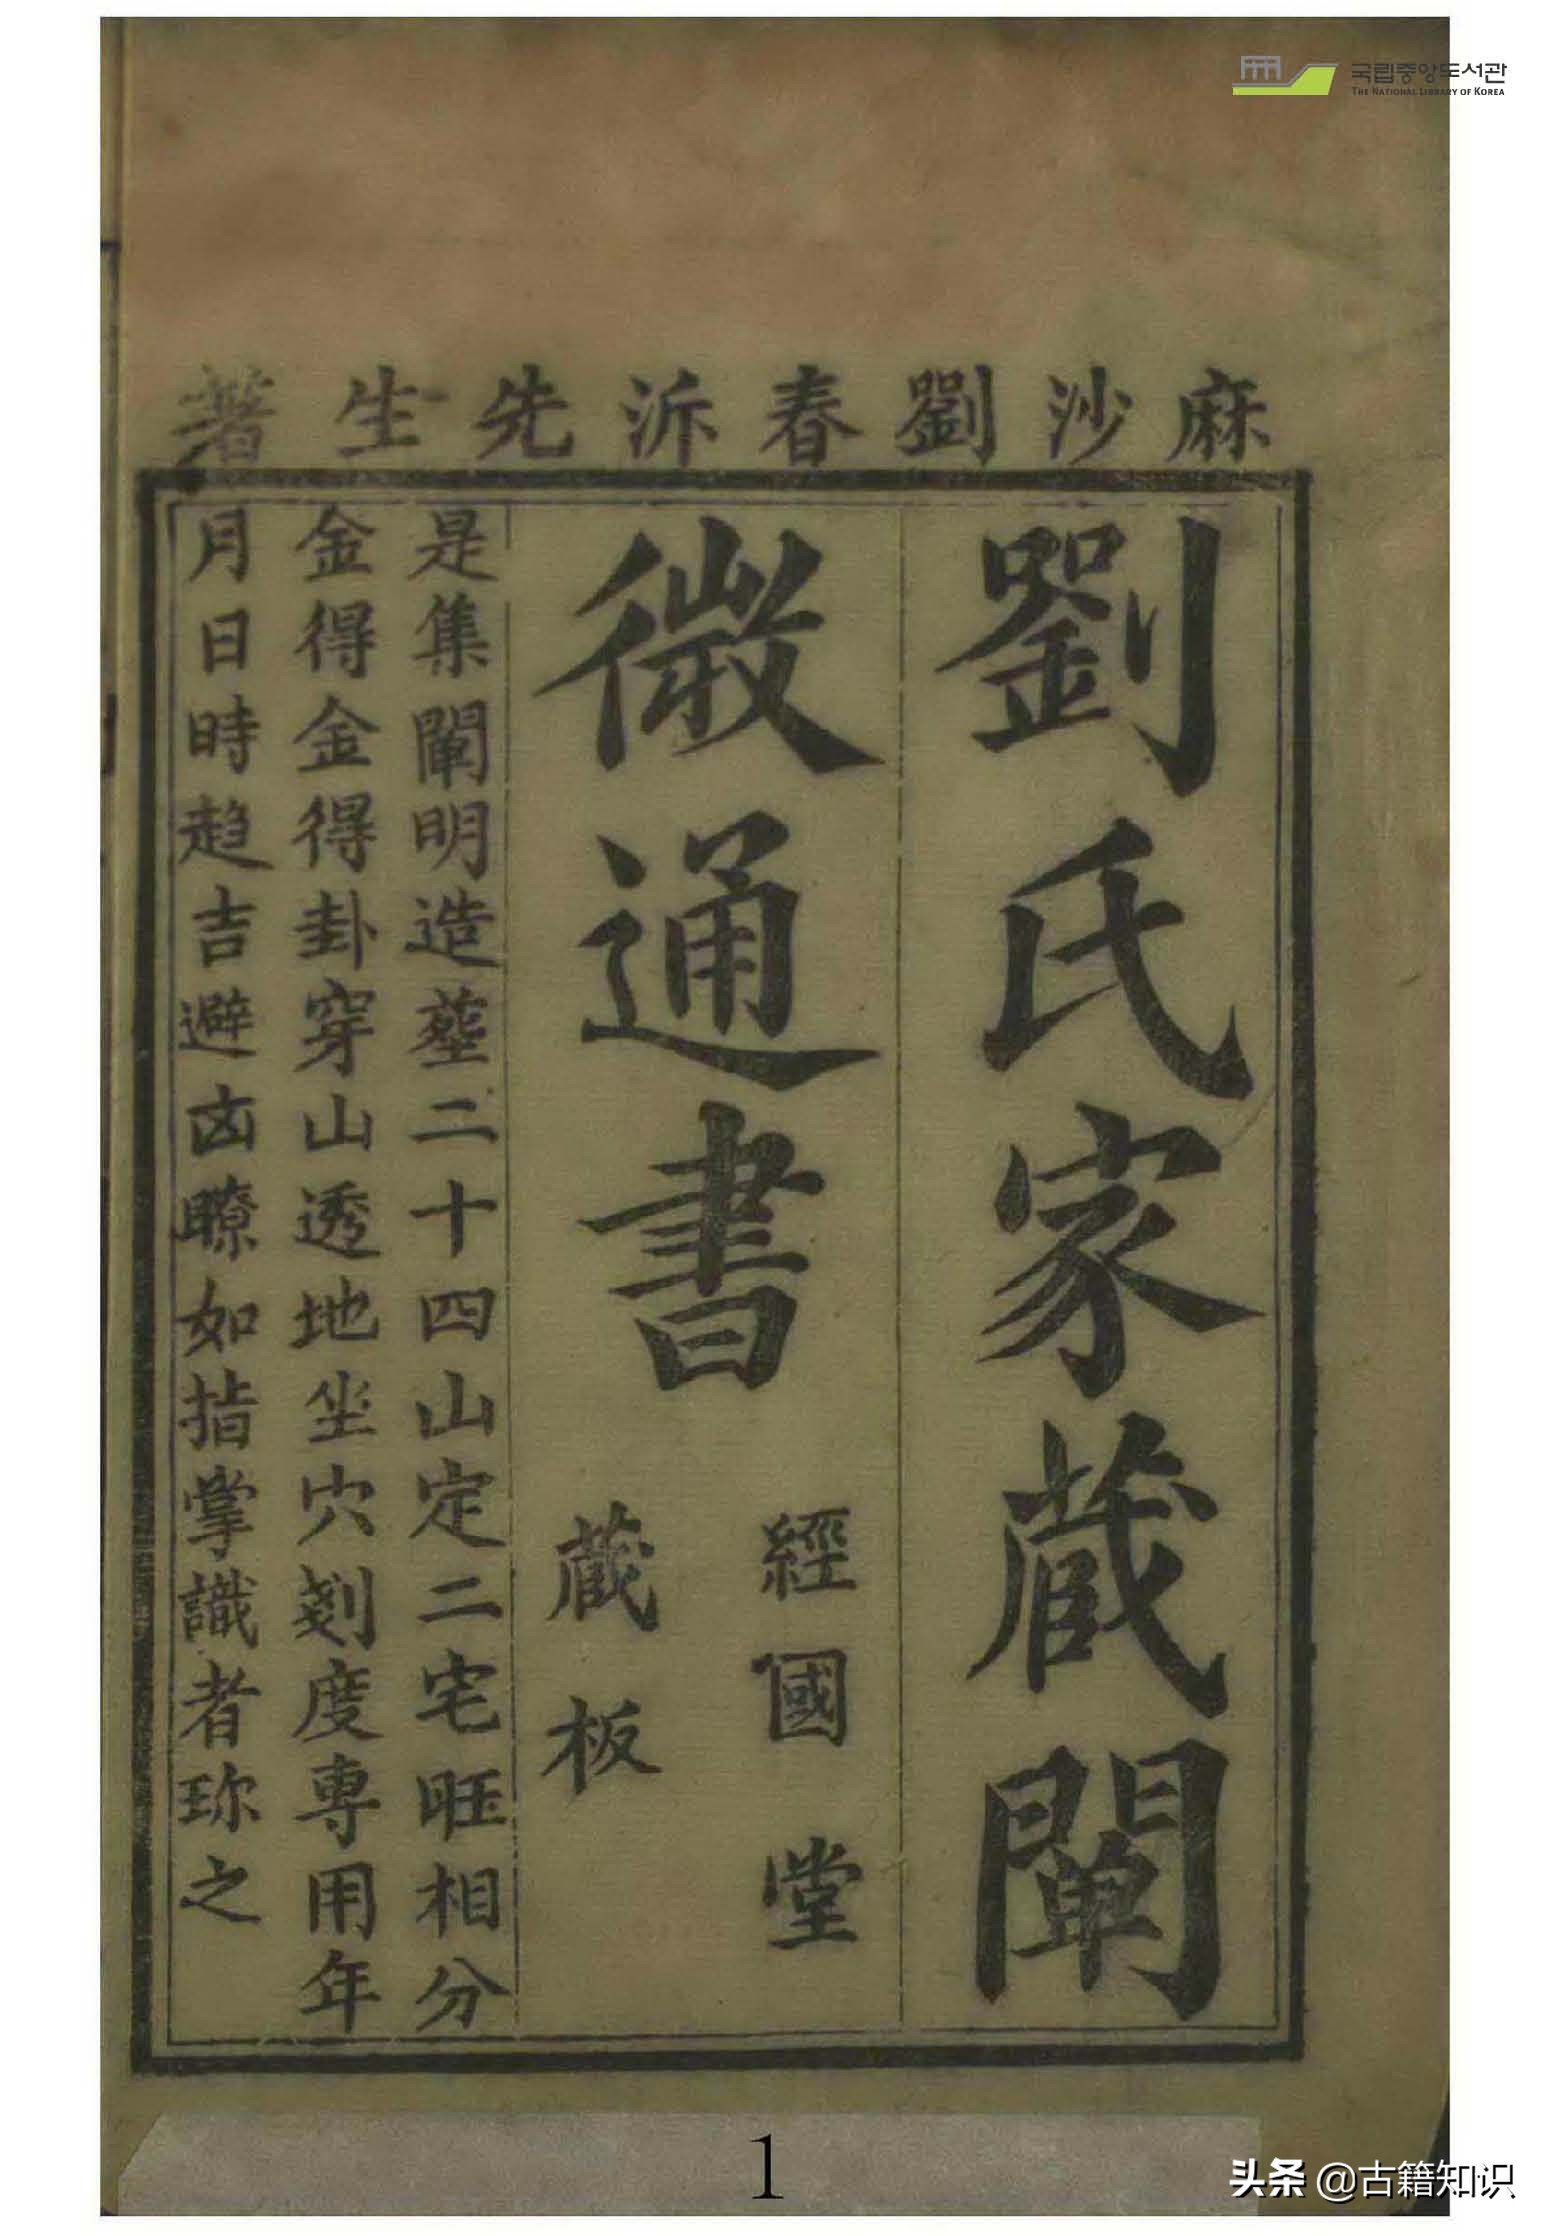 국립중앙도서관
THE NATIONAL LIBRARY OF KOREA
麻沙劉春泝先生著
劉氏家蔵闡
微通書
經國堂
蔵板
是集闡明造塟二十四山定二宅旺相分
金得金得卦穿山透地坐穴剗度專用年
月日時趋吉避凶瞭如指掌識者珎之
1
头条 @古籍知识